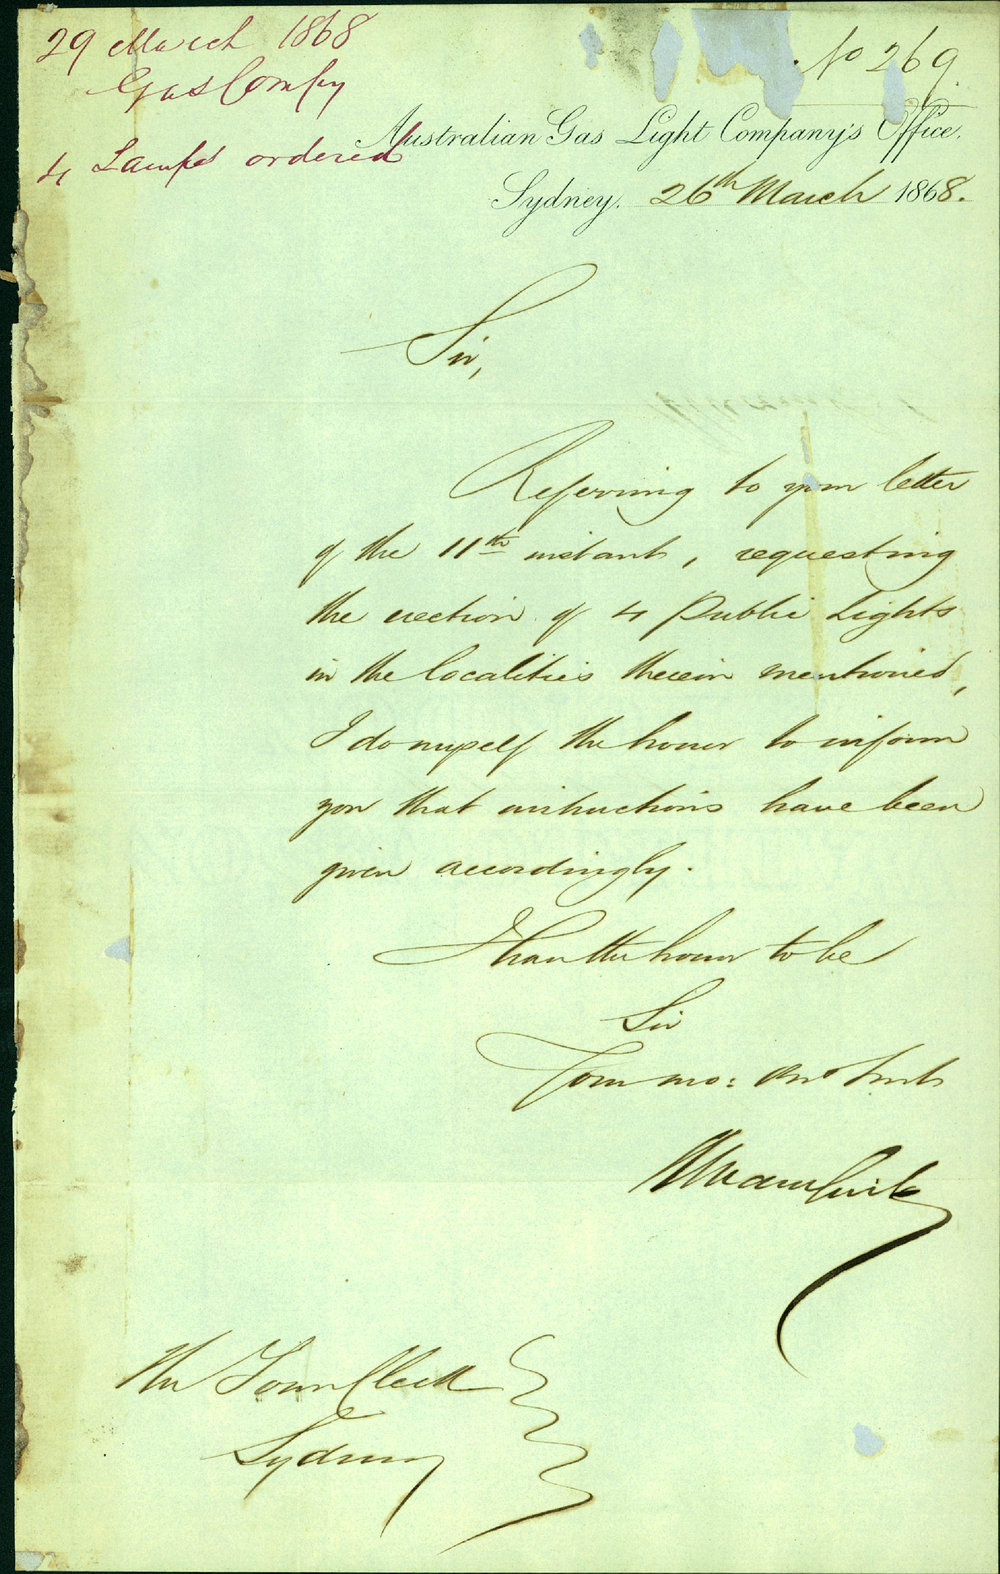 29 March 1868
Gas Compy
4 Lamps ordered
No 269.
Australian Gas Light Company's Office.
Sydney. 26th March 1868.
Sir,
Referring to your letter
of the 11th instant, requesting
the erection of 4 Public Lights
in the localities therein mentioned,
I do myself the honor to inform
you that instructions have been
given accordingly.
I have the honor to be
Sir
Your mo: Obt Servt
The Town Clerk
Sydney